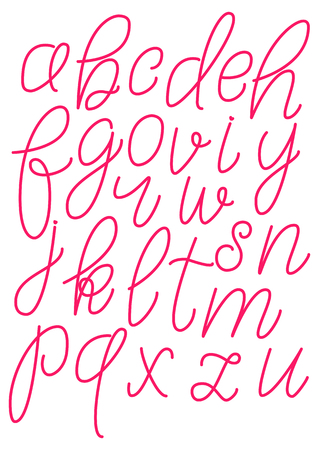 a b c d e h
f g o v i y
r w
j k l t s n
m
p q x z u